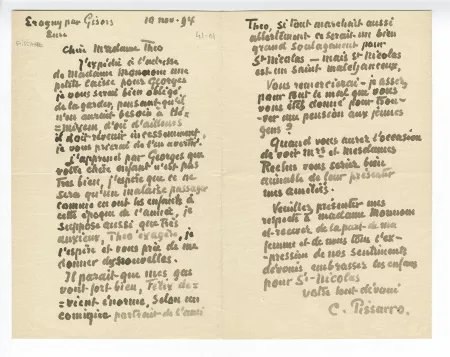 Eragny par Gisors 10 nov. 94
Eure
Chère Madame Théo
J'expédie à l'adresse
de Madame Monnom une
petite caisse pour Georges
je vous serai bien obligé
de la garder, pensant qu'il
n'en aurait besoin à
d'où d'ailleurs
il doit revenir incessamment,
je vous prierai de l'en avertir.
J'apprend par Georges que
votre chère enfant n'est pas
très bien, j'espère que ce ne
sera qu'un malaise passager
comme en ont les enfants à
cette époque de l'année, je
suppose aussi que très
anxieux, Théo exagère, je
l'espère et vous prie de me
donner des nouvelles.
Il parait que mes gas
vont fort bien, Félix de-
vient énorme, selon un
comique portrait de l'ami
Théo, si tout marchait aussi
ce serait un bien
grand soulagement pour
St Nicolas — mais St Nicolas
est un Saint malchanceux,
Vous remercierai-je assez
pour tout le mal que vous
vous êtes donné pour trou-
ver un pension aux jeunes
gens?
Quand vous aurez l'occasion
de voir Mr et mesdames
vous seriez bien
aimable de leur présenter
mes amitiés.
Veuillez présenter mes
respects à madame Monnom
et recevoir de la part de ma
femme et de nous tous l'ex-
pression de nos sentiments
dévoués embrassez les enfants
pour St-Nicolas
votre tout dévoué
C. Pissarro.